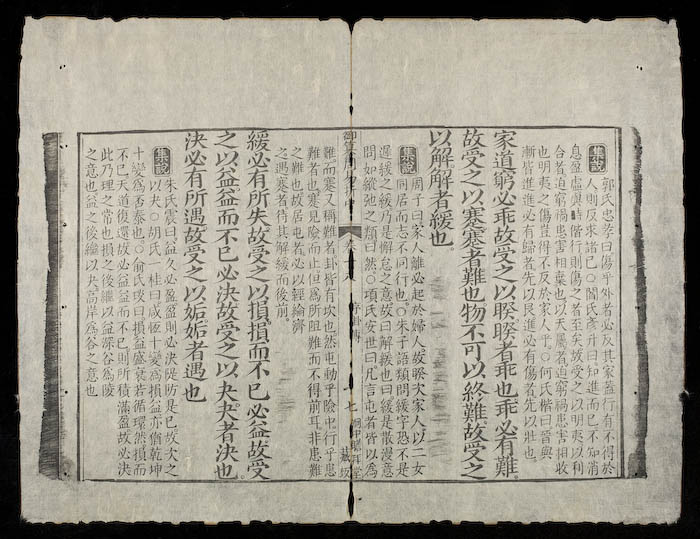 集說
郭氏忠孝曰傷乎外者必反其家蓋行有不得於
人則反求諸己〇閻氏彥升曰知進而已不知消
息盈虛與時偕行則傷之者至矣故受之以明夷以利
合者迫窮禍患害相棄也以天屬者迫窮禍患害相收
也明夷之傷豈得不反於家人乎〇何氏楷曰晉與
漸皆進進必有歸者先以艮進必有傷者先以壯也
家道窮必乖故受之以睽睽者乖也乖必有難
故受之以蹇蹇者難也物不可以終難故受之
以解解者緩也
集說
周子曰家人離必起於婦人故睽次家人以二女
同居而志不同行也〇朱子語類問緩字恐不是
遲緩之緩乃是懈怠之意故曰解緩也曰緩是散漫意
問如縱弛之類曰然〇項氏安世曰凡言屯者皆以為
難而蹇又稱難者卦皆有坎也然屯動乎險中行乎患
難者也蹇見險而止但為所阻難而不得前耳非患難
之難也故居屯者必以經綸濟
之遇蹇者待其解緩而後前
緩必有所失故受之以損損而不已必益故受
之以益益而不已必決故受之以夬夬者決也
決必有所遇故受之以姤姤者遇也
集說
朱氏震曰益久必盈盈則必決隄防是已故次之
以夬〇胡氏一桂曰咸恆十變為損益亦猶乾坤
十變為否泰也〇俞氏琰曰損益盛衰若循環然損而
不已天道復還故必益益而不已則所積滿盈故必決
此乃理之常也損之後繼以益深谷為陵
之意也益之後繼以夬高岸為谷之意也
序卦傳
七